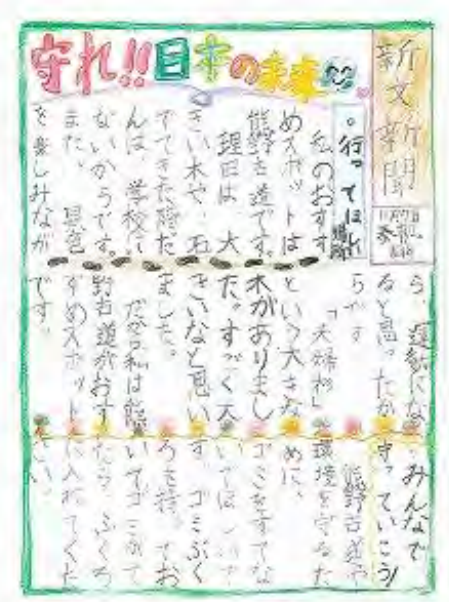 守れ!!日本の未来
新聞
行ってほしい
私のおすす
めスポットは
熊野古道です。
理由は、大
きい木や、石
でできた階だ
んは、学校に
ないからです。
また、景色
を楽しみなが
ら、運動にな
ると思ったか
らです
「夫婦杉」
という大きな
木がありまし
た。すごく大
きいなと思い
ました。
だから私は熊
野古道がおす
すめスポット
です。
みんなで
守っていこう!
熊野古道や
環境を守るた
めに、
ゴミをすてな
いでほしいで
す。ゴミぶく
ろを持ってお
いてゴミがで
たら、ふくろ
に入れてくだ
さい。